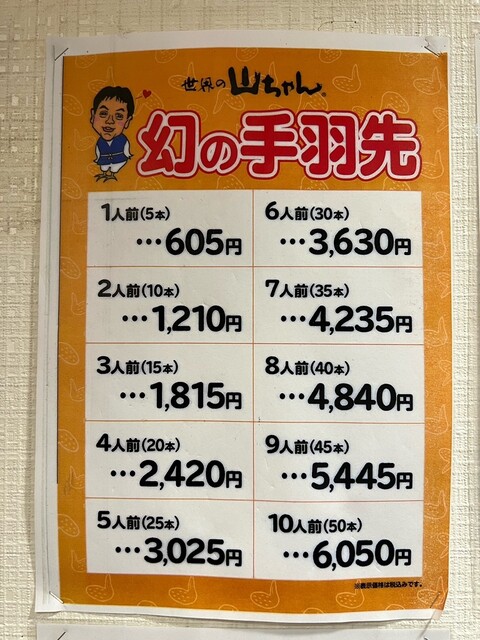 世界の山ちゃん®
幻の手羽先
1人前(5本)
…605円
2人前(10本)
…1,210円
3人前(15本)
…1,815円
4人前(20本)
…2,420円
5人前(25本)
…3,025円
6人前(30本)
…3,630円
7人前(35本)
…4,235円
8人前(40本)
…4,840円
9人前(45本)
…5,445円
10人前(50本)
…6,050円
※表示価格は税込みです。